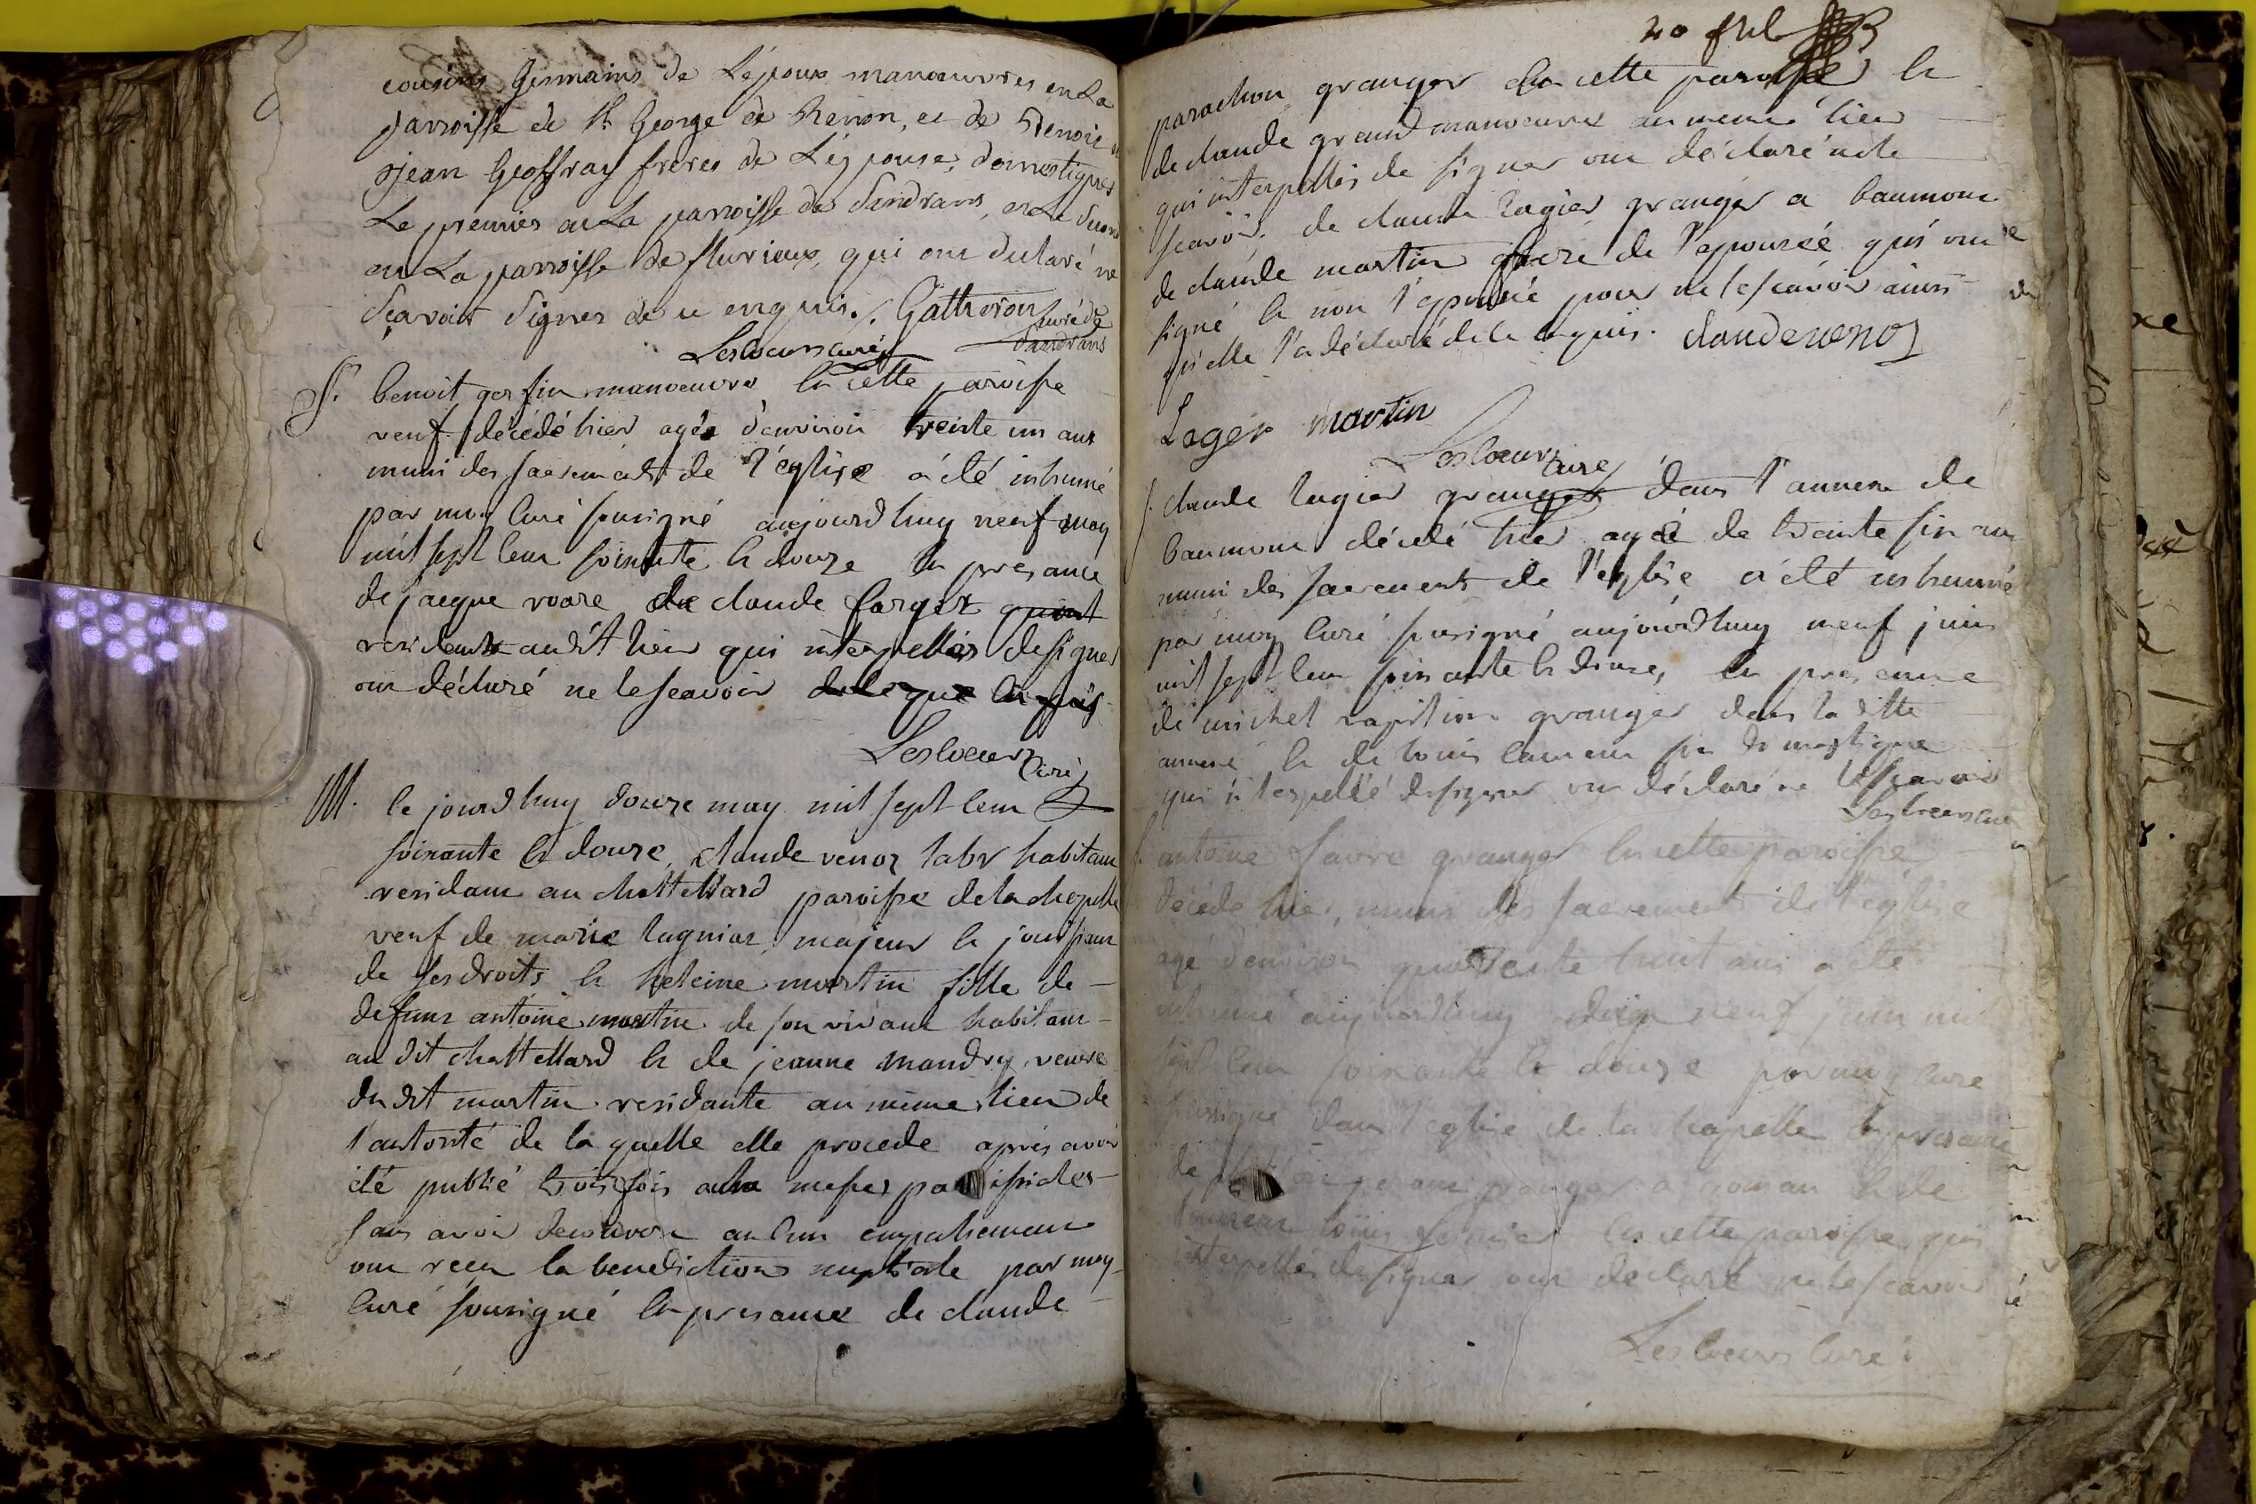 cousins Germains de Lépoux manoeuvres en La
parroisse de St George de Renon, et de Benoit et
jean Geoffray freres de Lépouse, domestiques
Le premier en La parroisse de Sandrans, et Le second
en La parroisse de flurieux, qui ont déclaré ne
Sçavoir Signer de ce enquis. Gatheron curé de
Sandrans
Lescoeurs curé
S. benoit gerfin manoeuvre en cette paroisse
veuf décédé hier agée d'environ trente un ans
muni des sacrements de l'eglise a été inhumé
par moy curé sousigné aujourd'huy neuf may
mil sept cent soixante et douze en presance
de jacque voare de claude forget
residents audit lieu qui interpellés de signer
ont déclaré ne le scavoir
Lescoeurs curé
M. le jourd'huy douze may mil sept cent
soixante et douze, claude venoz labr habitant
residant au chattellard paroisse de la chapelle
veuf de marie lagniaz, majeur et jouissant
de ses droits et heleine martin fille de
defunt antoine martin de son vivant habitant
au dit chattellard et de jeanne mandry veuve
du dit martin residante au même lieu de
l'autorité de la quelle elle procede après avoir
été publié trois fois aux messes paroissiales
sans avoir decouvert aucun empechement
ont recu la benediction nuptiale par moy
curé sousigné en presance de claude
parachon granger en cette paroisse et
de claude grand manoeuvre au meme lieu
qui interpellés de signer ont déclaré ne le
scavoir. de claude lagier granger a baumont
de claude martin frere de l'epousée qui ont
signé et non l'epousée pour ne le scavoir ainsi
qu'elle l'a déclaré de ce enquis. claude venoz
Lager martin
Lescoeurs curé
S. claude lagier granger dans l'annexe de
baumont décédé hier agée de trente six ans
muni des sacrements de l'eglise a été inhumé
par moy curé sousigné aujourd'huy neuf juin
mil sept cent soixante et douze, en presance
de michel granger dans la ditte
annexe et de louis domestique
qui interpellé de signer ont déclaré ne le scavoir
Lescoeurs curé
antoine favre granger en cette paroisse
décédé hier, muni des sacrements de l'église
agé d'environ quarente huit ans a été
inhumé aujourd'huy dix neuf juin mil
sept cent soixante et douze par moy curé
sousigné dans l'eglise de la chapelle en presance
de granger a et de
louis en cette paroisse qui
interpellés de signer ont déclaré ne le scavoir
Lescoeurs curé